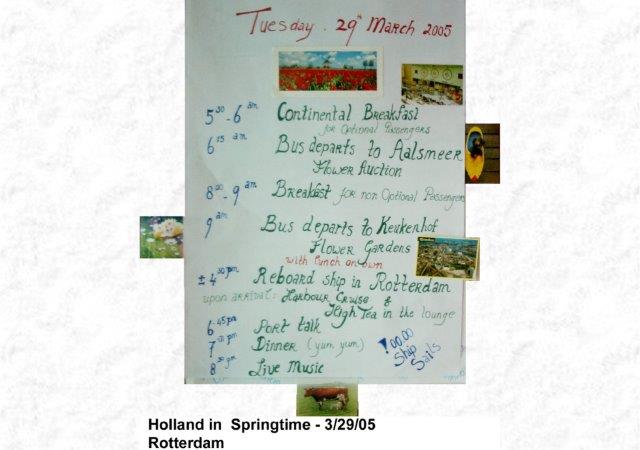 Tuesday . 29th March 2005
5 30 - 6 am Continental Breakfast
for Optional Passengers
6 15 am Bus departs to Aalsmeer
Flower Auction
8 00 - 9 am Breakfast for non Optional Passengers
9 am Bus departs to Keukenhof
Flower Gardens
with lunch on own
± 4 30 pm Reboard ship in Rotterdam
upon arrival: Harbour Cruise &
High Tea in the lounge
6 45 pm Port talk
7 00 pm Dinner (yum, yum)
8 30 pm Live Music
! 00.00
Ship
Sails
Holland in Springtime - 3/29/05
Rotterdam